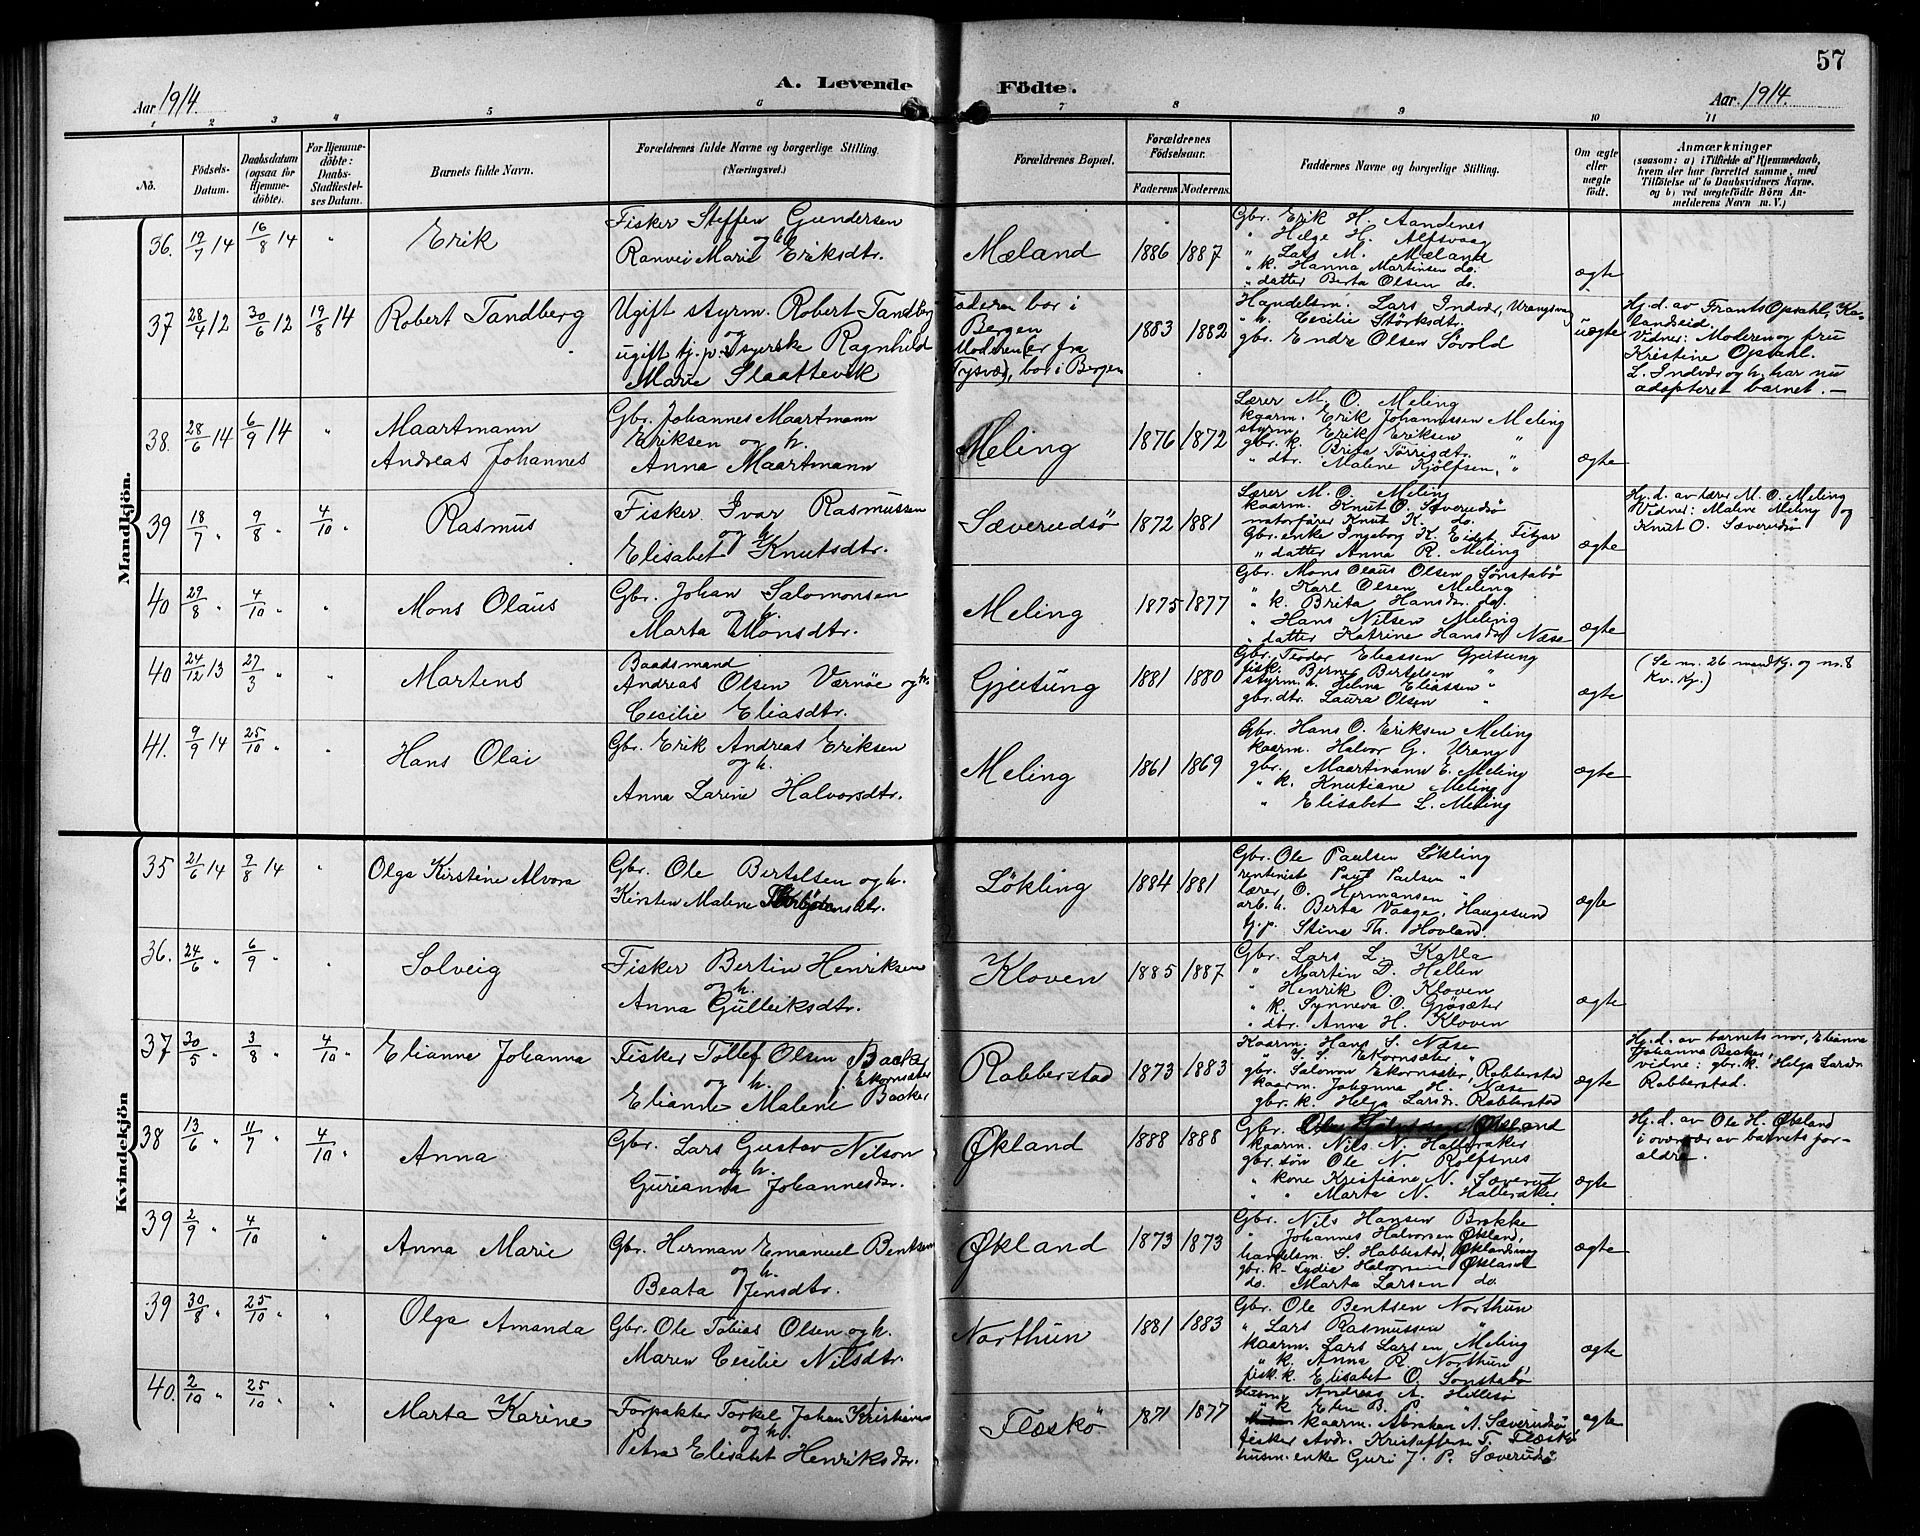 57
Aar 1914.
A. Levende Födte.
Aar 1914.
1 2 3 4 5 6 7 8 9 10 11
No.
Födsels-Datum.
Daabsdatum (ogsaa for Hjemme-döbte).
For Hjemme-döbte: Daabs-Stadfæstel-ses Datum.
Barnets fulde Navn.
Forældrenes fulde Navne og borgerlige Stilling. (Næringsvei.)
Forældrenes Bopæl.
Forældrenes Födselsaar.
Faderens. Moderens.
Faddernes Navne og borgerlige Stilling.
Om ægte eller uægte födt.
Anmærkninger
(saasom: a) i Tilfælde af Hjemmedaab,
hvem der har forrettet samme, med
Tilföielse af to Daabsvidners Navne,
og b) ved uægtefödte Börn An-
melderens Navn m. V.)
Mandkjön.
36. 19/7 14 16/8 14 "
Erik
Fisker Steffen Gundersen
og h.
Ranvei Marie Eriksdtr.
Mæland
1886 1887
Gbr. Erik H. Aandenes
" Helge H. Alfsvaag
" Lars M. Mæland
" k. Hanna Martinsen do.
" datter Berta Olsen do.
ægte
37 28/4 12 30/6 12 19/8 14
Robert Tandberg
Ugift styrm. Robert Tandberg
og
ugift tj.p. Ragnhild
Marie Slaattevik
Faderen bor i
Bergen
Moderen (er fra
Tysvær), bor i Bergen
1883 1882
Handelsm. Lars Indvær, Urangsvaag
" h. Cecilie Störksdtr.
gbr. Endre Olsen Sövold
uægte
Hj.d. av Frants Opsahl, Ka-
landseid.
Vidner: Moderen og fru
Kristine Opsahl.
L. Indvær og h. har nu
adopteret barnet. —
38. 28/6 14 6/9 14 "
Maartmann
Andreas Johannes
Gbr. Johannes Maartmann
Eriksen og h.
Anna Maartmann
Meling
1876 1872
Lærer M. O. Meling
kaarm. Erik Johannessen Meling
styrm. Erik Eriksen "
gbr. k. Brita Törresdtr. "
" dtr. Malene Kjölfsen, "
ægte
39 18/7 " 9/8 " 4/10 "
Rasmus
Fisker Ivar Rasmussen
og h.
Elisabet Knutsdtr.
Sæverudsö
1872 1881
Lærer M. O. Meling
kaarm. Knut O. Sæverudsö
motorförer Knut K. do.
Gbr. enke Ingeborg K. Eidet, Fitjar
" datter Anna R. Meling
ægte
Hj.d. av lærer M. O. Meling
Vidner: Malene Meling og
Knut O. Sæverudsö
40 29/8 " 4/10 " "
Mons Olaus
Gbr. Johan Salomonsen
og h.
Marta Monsdtr.
Meling
1875 1877
Gbr. Mons Olaus Olsen Sönstabö
" Karl Olsen Meling
" k. Brita Hansdr. do.
" Hans Nilsen Meling
" datter Katrine Hansdr Næse
ægte
40 24/12 13 27/3 " "
Martens
Baadsmand
Andreas Olsen Værnöe og h.
Cecilie Eliasdtr.
Gjeitung
1881 1880
Gbr. Teodor Eliassen Gjeitung
fisk. Berner Bertelsen "
styrm. h. Helma Eliassen "
gbr. dtr. Laura Olsen "
ægte
(Se nr. 26 mandkj. og nr. 8
Kv. kj.)
41. 9/9 14 25/10 " "
Hans Olai
Gbr. Erik Andreas Eriksen
og h.
Anna Larine Halvorsdtr.
Meling
1861 1869
Gbr. Hans O. Eriksen Meling
kaarm. Halvor G. Urang
gbr. Maartmann E. Meling
" k. Knutiane Meling
" Elisabet L. Meling
ægte
Kvindekjön
35 21/6 14 9/8 14 "
Olga Kirstine Alvora
Gbr. Ole Bertelsen og h.
Kirsten Malene Torbjönsdtr.
Lökling
1884 1881
Gbr. Ole Paulsen Lökling
rentenist Paul Paulsen "
lærer O. Hermansen "
arb. h. Berta Vaage, Haugesund
tj.p. Stina Th. Hovland.
ægte
36. 24/6 " 6/9 " "
Solveig
Fisker Bertin Henriksen
og h.
Anna Gulleiksdtr.
Kloven
1885 1887
Gbr. Lars L. Katla
" Martin D. Hellen
" Henrik O. Kloven
" k. Synneva O. Gjösæter
" dtr. Anna H. Kloven
ægte
37 30/5 " 3/8 " 4/10 "
Elianne Johanna
Fisker Tollef Olsen Baaker
og h. f. Ekornsæter
Elianne Malene Baaker
Robberstad
1873 1883
Kaarm. Hans S. Næse
" S. S. Ekornsæter, "
gbr. Salomon Ekornsæter, Robberstad
kaarm. Johanna H. Næse
gbr. k. Helga Larsdr. Robberstad
ægte
Hj.d. av barnets mor, Elianna
Johanna Baaker,
vidne: gbr. k. Helga Larsdr
Robberstad.
38 13/6 " 11/7 " 4/10 "
Anna
Gbr. Lars Gustav Nilsen
og h.
Gurianna Johannesdr.
Økland
1888 1888
Gbr. Økland
kaarm. Nils N. Halleraker
gbr. sön Ole N. Rolfsnes
" kone Kristiane N. Sæverud
" " Marta N. Halleraker
ægte
Hj.d. av Ole H. Økland
i overvær av barnets for-
ældre.
39 2/9 " 4/10 " "
Anna Marie
Gbr. Herman Emanuel Bentsen
og h.
Beata Jensdtr.
Økland
1873 1873
Gbr. Nils Hansen Brekke
" Johannes Halvorsen Økland,
handelsm. S. Habbestad, Øklandsvaag
gbr. k. Lydia Halvorsen Økland
do. Marta Larsen do.
ægte
39 30/8 " 25/10 " "
Olga Amanda
Gbr. Ole Tobias Olsen og h.
Maren Cecilie Nilsdtr.
Northun
1881 1883
Gbr. Ole Bentsen Northun
" Lars Rasmussen "
kaarm. Lars Larsen Meling
" k. Anna R. Northun
fisk. k. Elisabet O. Sönstabö
ægte
40. 2/10 " 25/10 " "
Marta Karine
Forpakter Torkel Johan Kristiansen
og h.
Petra Elisabet Henriksdtr.
Flæskö
1871 1877
Husm. Andreas A. Hellesö
" k. Elen B. P. "
kaarm. Abraham A. Sæverudsö
fisker Andr. Kristoffersen T. Flæskö
husm. enke Guri J. P. Sæverudsö
ægte